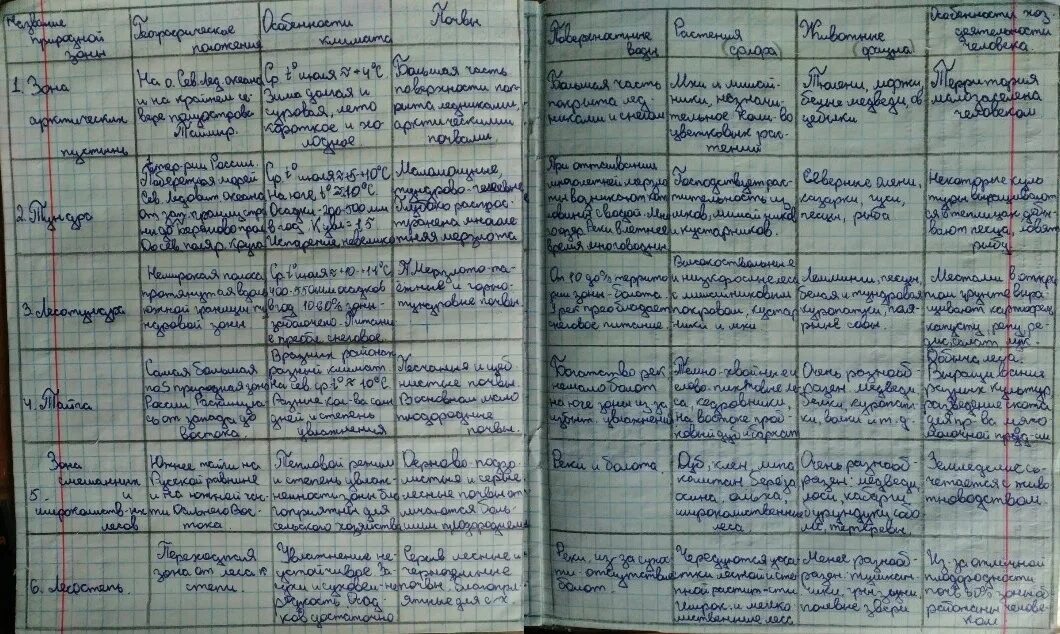 Название
природной
зоны
Географическое
положение
Особенности
климата
Почвы
Поверхностные
воды
Растения
(флора)
Животные
(фауна)
Особенности хоз.
деятельности
человека
1. Зона
арктических
пустынь
На о. Сев. Лед. океана
и на крайнем се-
вере полуострова
Таймыр.
Ср. t° июля ≈ +4°C
Зима долгая и
суровая, лето
короткое и хо-
лодное
Большая часть
поверхности пок-
рыта ледниками,
арктическими
почвами
Большая часть
покрыта лед
никами и снегом
Мхи и лишай-
ники, незначи-
тельное кол-во
цветковых рас-
тений
Тюлени, моржи,
белые медведи, ов
цебыки
Территория
малозаселена
человеком
2. Тундра
России.
Побережья морей
Сев. Ледовит. океана
От зап. границ стра
ны до Берингова прол
До сев. поляр. круга
Ср. t° июля ≈ +5 +10°C
На юге t° ≈ 10°C
Осадки - 200-500 мм
в год. К увл = 1,5
Испарение невелико
Маломощные,
тундрово-глеевые
Глубоко распрос-
транена многоле
тняя мерзлота
При оттаивании
многолетней мерзло
ты возникают кот
ловины с водой. Мн.
озёр. Реки в летнее
время многоводны
Господствует рас-
тительность из
мхов, лишайников
и кустарников.
Северные олени,
казарки, гуси,
песцы, рыба
Некоторые куль
туры выращивают
ся в теплицах, до
вают песца, ловят
рыбу
3. Лесотундра
Неширокая полоса
протянутая вдоль
южной границы ту
ндровой зоны
Ср. t° июля ≈ +10 - +14°C
400-550 мм осадков
в год. 10-60% зоны
заболочено. Питание
рек преобл. снеговое.
Мерзлото-та-
ёжные и горно-
тундровые почвы.
От 10 до % террито
рии зоны - болота.
У рек преобладает
снеговое питание.
Высокоствольные
и низкорослые леса
с лишайниковым
покровом, кустар
ники и мхи
Лемминги, песцы,
белая и тундровая
куропатки, пол
рные совы.
Местами в откры
том грунте выра
щивают картофель,
капусту, репу, ре-
дис, салат, лук.
4. Тайга
Самая большая
по S природная зона
России. Раскинула
сь от запада до
востока.
В разных районах
разный климат
На сев. ср. t° ≈ 10°C
Разные кол-во сол
дней и степень
увлажнения
Песчаные и щеб
нистые почвы.
В основном мало
плодородные
почвы.
Богатство рек
немало болот
на юге зоны из-за
избыт. увлажнения
Темно-хвойные
елово-пихтовые ле
са, кедровники,
на востоке про
ковый дуб и бархат
Очень разнооб-
разен: медведи,
белки, куропат-
ки, волки и т.д.
Добыча леса.
Выращивание
разных культур
разведение скота
для пр-ва мясо
молочной прод-ии
Зона
5. смешанных
и
широколиств-ных
лесов
Южнее тайги на
Русской равнине
и на южной час-
ти Дальнего Вос-
тока.
Тепловой режим
и степень увлаж-
нённости зоны бла
гоприятны для
сельского хозяйства
Дерново-подзо-
листые и серые
лесные почвы от
личаются боль-
шим плодородием
Реки и болота.
Дуб, клен, липа
каштан, береза
осина, ольха.
широколиственные
леса
Очень разнооб-
разен: медведи,
лоси, кабарги,
бурундуки, собо
ли, тетеревы.
Земледелие со-
четается с живо
тноводством.
6. Лесостепь.
Переходная
зона от леса к
степи.
Увлажнение не-
устойчивое. За-
сухи и суховеи -
редкость. Осад
ков достаточно
Серые лесные и
черноземные
почвы. Благопри
ятные для с/х
Реки, из-за сухос
ти - отсутствие
болот.
Чередуются учас
тки лесной и сте
пной растит-сти
широк. и мелко
лиственные леса
Менее разнооб-
разен: тушкан-
чики, грызуны,
полевые звери
Из-за отличной
плодородности
почв 80% зоны
распаханы челове-
ком